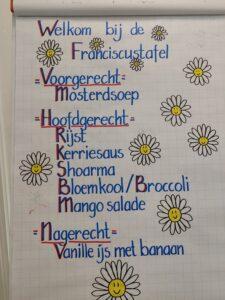 Welkom bij de
Franciscustafel
=Voorgerecht=
Mosterdsoep
=Hoofdgerecht=
Rijst
Kerriesaus
Shoarma
Bloemkool/Broccoli
Mango salade
=Nagerecht=
Vanille ijs met banaan